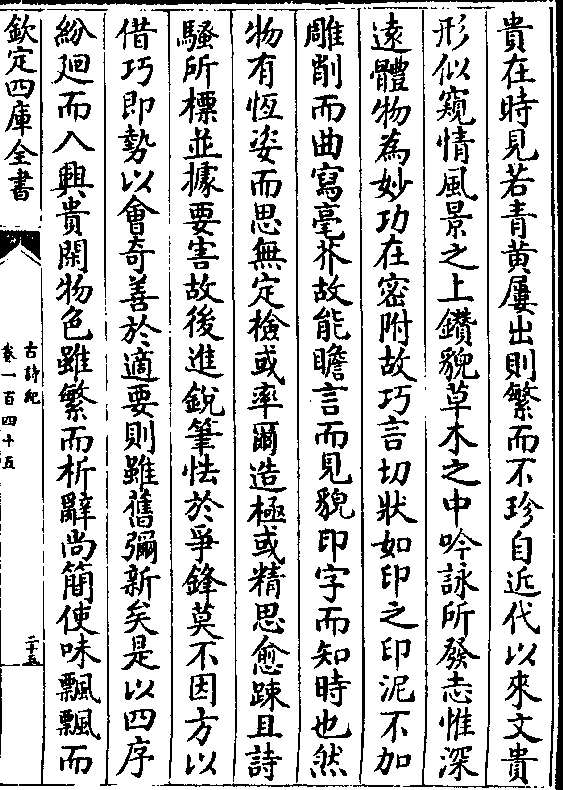 貴在時見若青黄屢出則繁而不珍自近代以來文貴
形似窺情風景之上鑽貌草木之中吟詠所發志惟深
遠體物為妙功在密附故巧言切狀如印之印泥不加
雕削而曲寫毫芥故能瞻言而見貌印字而知時也然
物有恆姿而思無定檢或率爾造極或精思愈踈且詩
騷所標並據要害故後進銳筆怯於爭鋒莫不因方以
借巧即勢以會奇善於適要則雖舊彌新矣是以四序
紛廻而入興貴閑物色雖繁而析辭尚簡使味飄飄而
欽定四庫全書
古詩紀
卷一百四十五
二十五